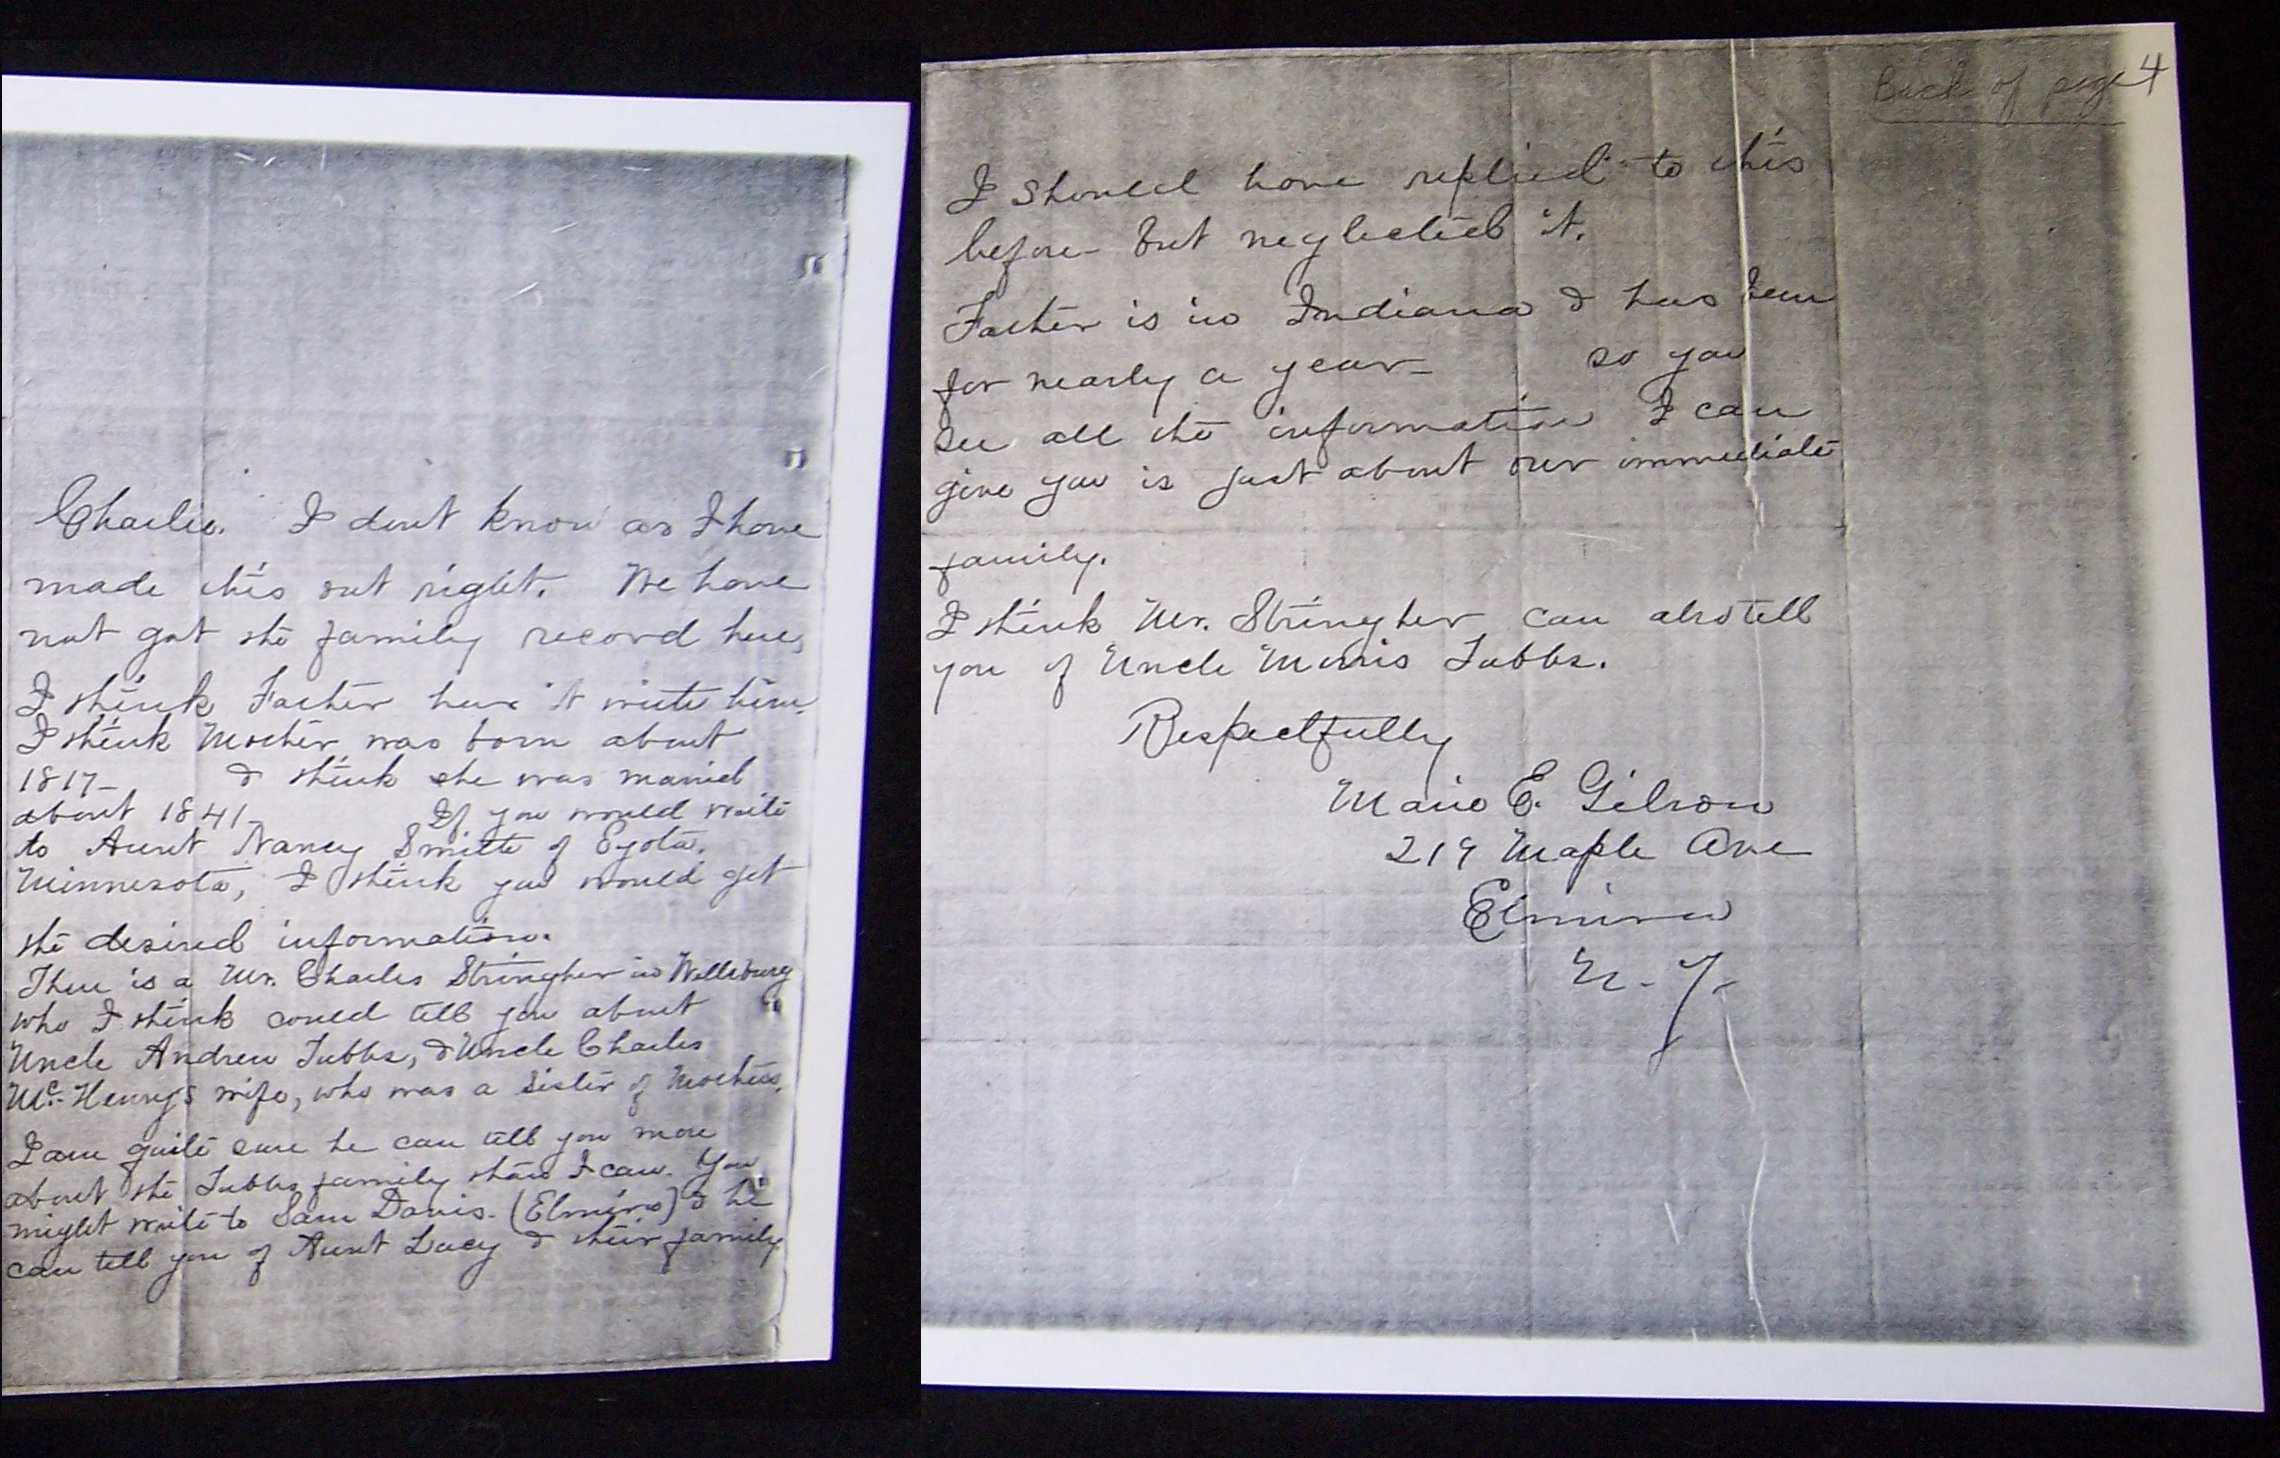 Charlie. I dont know as I have
made this out right. We have
not got the family record here,
I think Father have it write him.
I think Mother was born about
1817- & think she was married
about 1841- If you would write
to Aunt Nancy Smith of Eyota,
Minnesota, I think you would get
the desired information.
There is a Mr. Charles Stringher in Wellsburg
who I think could tell you about
Uncle Andrew Tubbs, & Uncle Charles
Mc-Henry's wife, who was a sister of Mothers.
I am quite sure he can tell you more
about the Tubbs family than I can. You
might write to Sam Davis. (Elmira) & he
can tell you of Aunt Lucy & their family
Back of page 4
I should have replied to this
before- but neglected it.
Father is in Indiana & has been
for nearly a year- so you
see all the information I can
give you is just about our immediate
family.
I think Mr. Stringher can also tell
you of Uncle Morris Tubbs.
Respectfully
E. Gilson
219 Maple Ave
Elmira
N. Y.